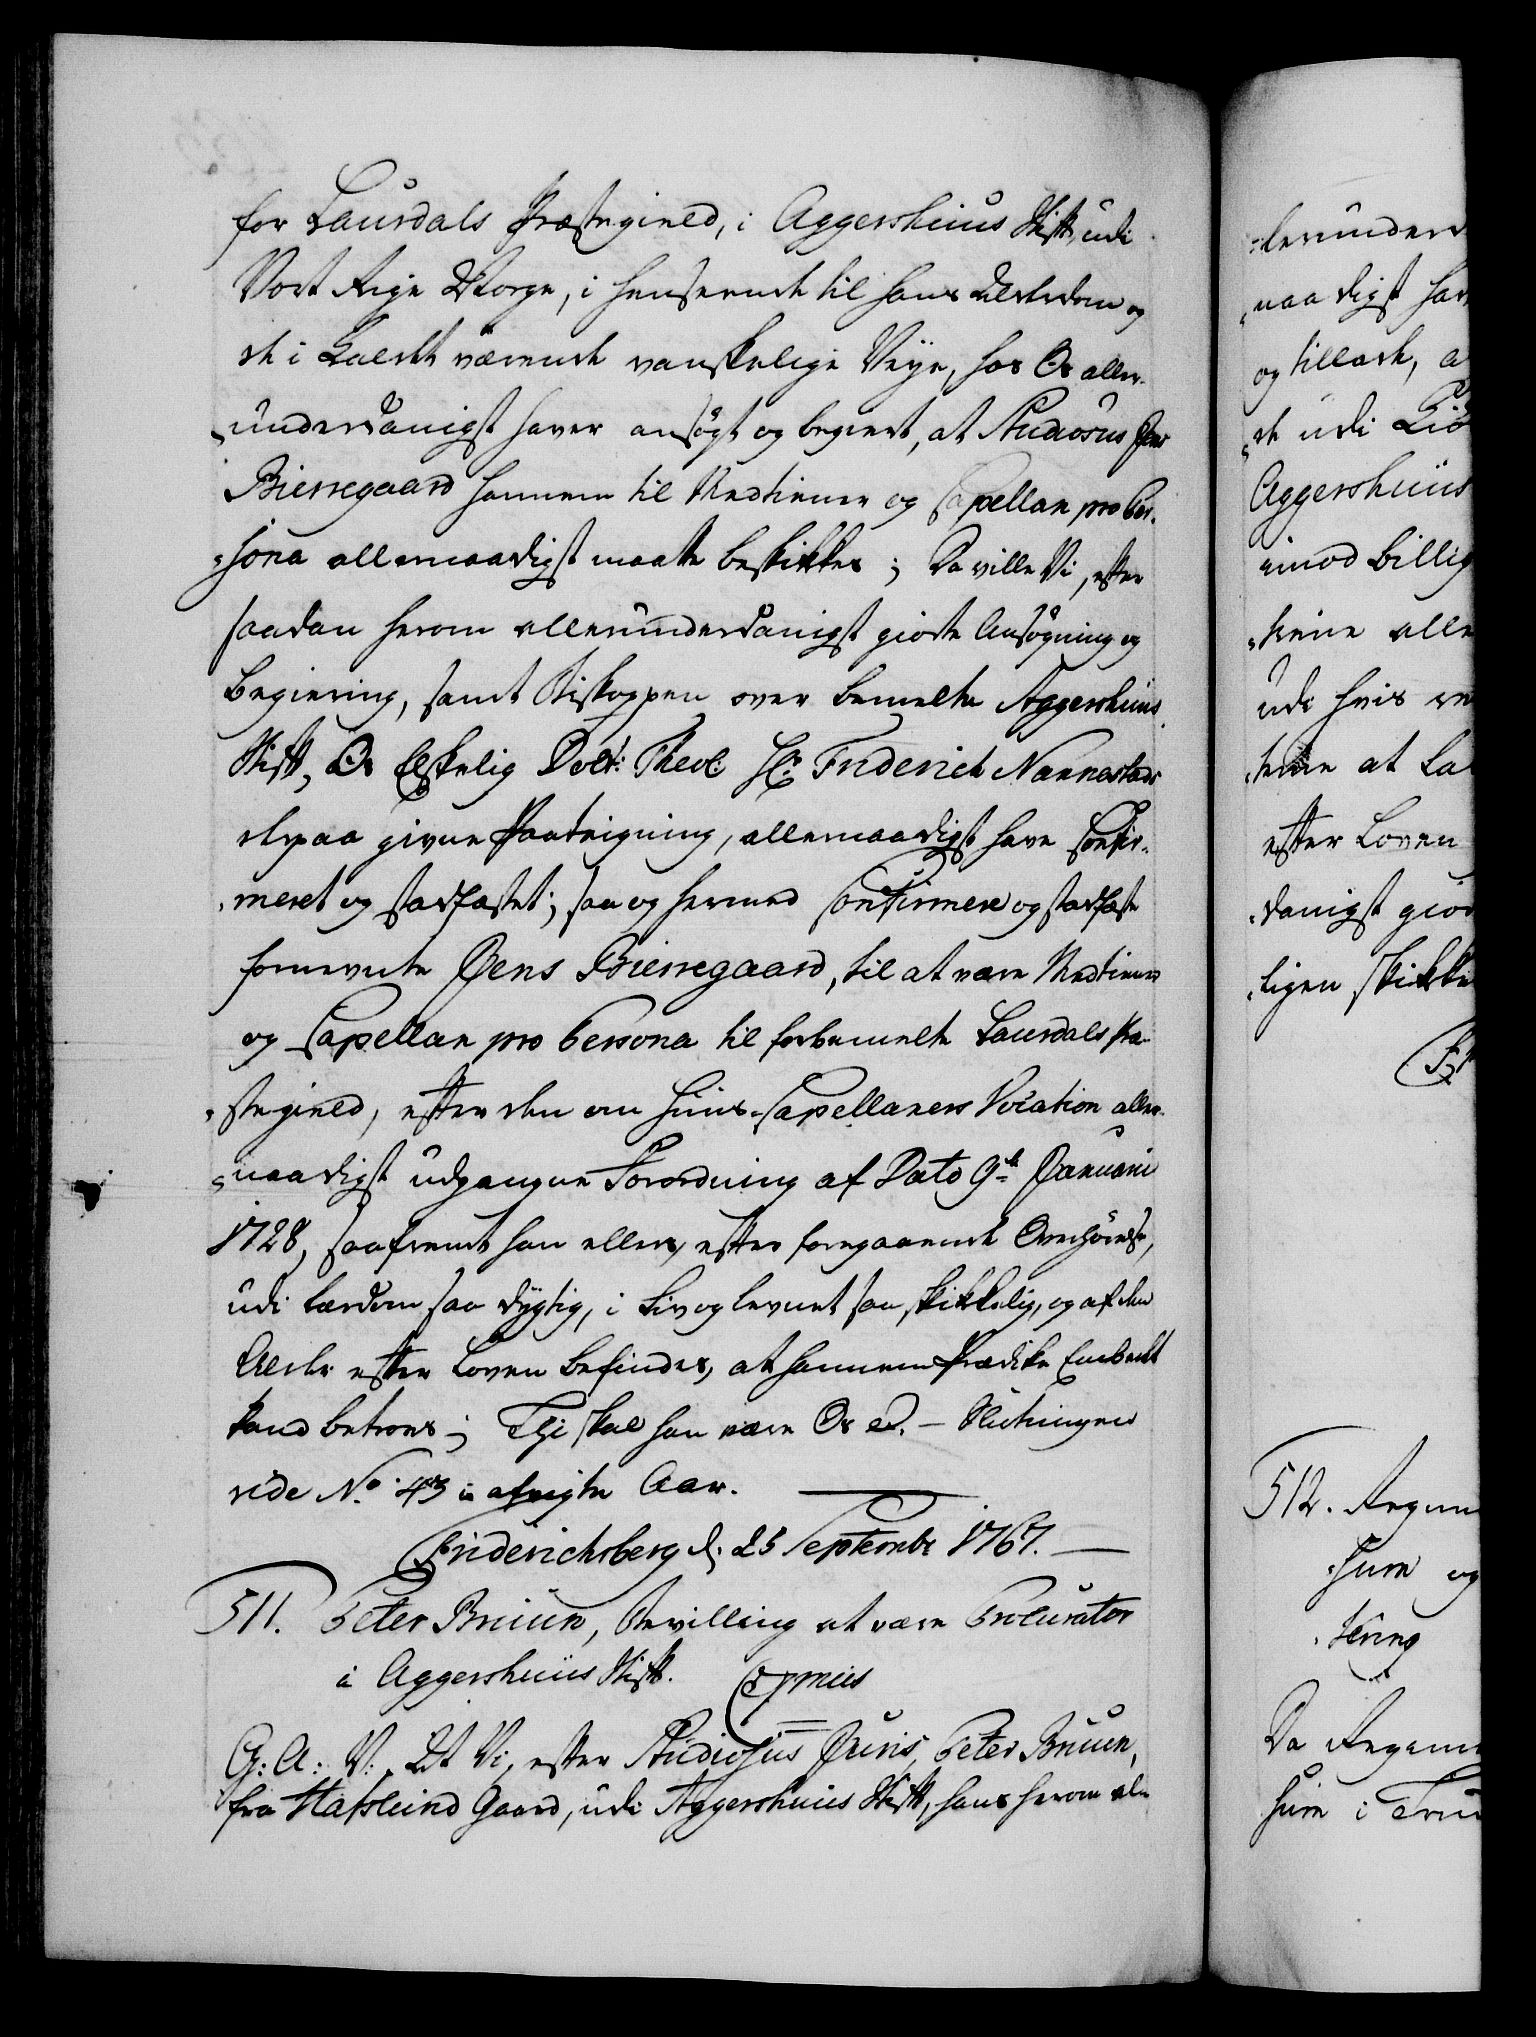 for Laurdals Præstegield, i Aggershuus Stift, udi
Vort Rige Norge, i henseende til hans Alderdom og
de i Kaldet værende vanskelige Veye, hos Os aller-
underdanigst haver ansøgt og begiert, at Studiosus Jens
Bierregaard hannem til Medtiener og Capellan pro Per-
sona allernaadigst maatte beskikkes; Da ville Vi, efter
saadan herom allerunderdanigst giorte Ansøgning og
Begiering, samt Biskoppen over bemelte Aggershuus
Stift, Os Elskelig Doct: Theol: Hr: Friderich Nannestads
derpaa givne Paategning, allernaadigst have Confir-
meret og stadfæstet; saa og hermed Confirmere og stadfæste
fornevnte Jens Bierregaard, til at være Medtiener
og Capellan pro Persona til forbemelte Laurdals Præ-
stegield, efter den om Huus-Capellaners Vocation aller-
naadigst udgangne Forordning af Dato 9de Januarii
1728, saafremt han ellers, efter foregaaende Overhørelse,
udi Lærdom saa dygtig, i Liv og levnet saa skikkelig, og af den
Alder efter Loven befindes, at hannem Prædike Embedet
kand betroes; Thi skal han være Os &c. – Slutningen
vide No 43 i afvigte Aar.
Friderichsberg d: 25 Septembr 1767.
511. Peter Bruun, Bevilling at være Procurator
i Aggershuus Stift. Expmus
G: A: V: At Vi, efter Studiosus Juris, Peter Bruun,
fra Hafslund Gaard, udi Aggershuus Stift, hans herom al-
lerunder
naadigst hav
og tillade, a
de udi
Aggershuus
imod billig
tiene alle
udi hvis
tene at la
efter Loven
danigst gior
ligen skikke
512.
hum og
Da
hum i